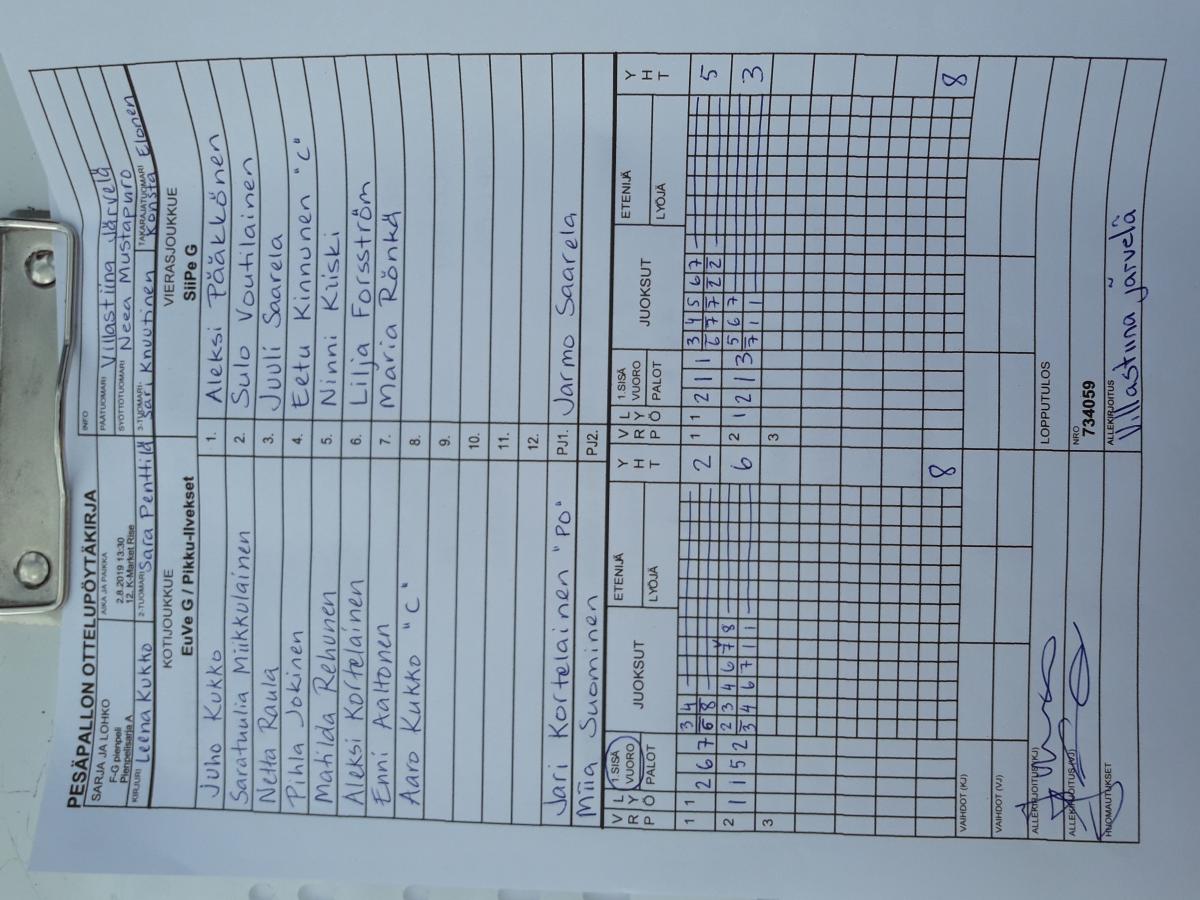 PESÄPALLON OTTELUPÖYTÄKIRJA
INFO
SARJA JA LOHKO
F-G pienpeli
Pienpelisarja A
AIKA JA PAIKKA
2.8.2019 13:30
12. K-Market Rise
PÄÄTUOMARI Villastiina Järvelä
SYÖTTÖTUOMARI Neea Mustapuro
KIRJURI Leena Kukko
2-TUOMARI Sara Penttilä
3-TUOMARI Sari Knuutinen
TAKARAJATUOMARI Konsta Elonen
KOTIJOUKKUE
EuVe G / Pikku-Ilvekset
VIERASJOUKKUE
SiiPe G
Juho Kukko 1. Aleksi Pääkkönen
Saratuulia Miikkulainen 2. Sulo Voutilainen
Netta Raula 3. Juuli Saarela
Pihla Jokinen 4. Eetu Kinnunen "C"
Matilda Rehunen 5. Ninni Kiiski
Aleksi Kortelainen 6. Lilja Forsström
Enni Aaltonen 7. Maria Rönkä
Aaro Kukko "C" 8.
9.
10.
11.
12.
Jari Kortelainen "PO" PJ1. Jarmo Saarela
Miia Suominen PJ2.
V R P L Y Ö 1.SISÄ VUORO PALOT JUOKSUT ETENIJÄ LYÖJÄ Y H T V R P L Y Ö 1.SISÄ VUORO PALOT JUOKSUT ETENIJÄ LYÖJÄ Y H T
1 1 2 6 7 3 4 2 1 1 2 1 1 3 4 5 6 7 5
6 8 6 7 7 2 2
2 1 1 5 2 2 3 4 6 7 8 6 2 1 2 1 3 5 6 7 3
3 4 6 7 1 1 7 1 1
3 3
8 8
VAIHDOT (KJ)
VAIHDOT (VJ)
ALLEKIRJOITUS (KJ)
LOPPUTULOS
ALLEKIRJOITUS (VJ)
NRO
734059
HUOMAUTUKSET
ALLEKIRJOITUS
Villastiina Järvelä